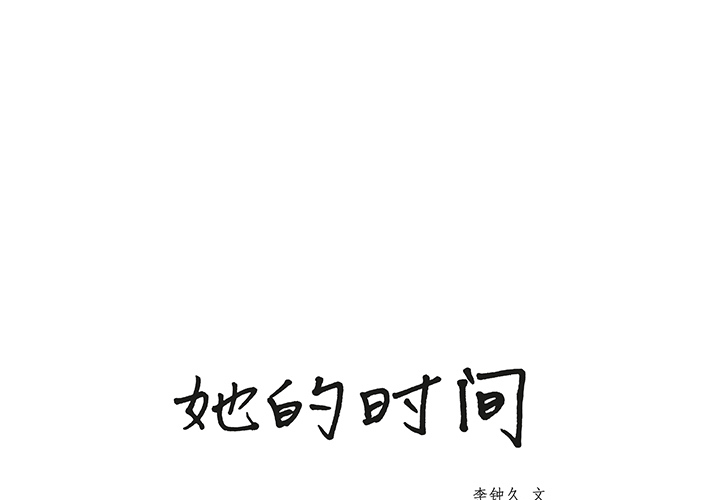 她的时间
李钟久 文